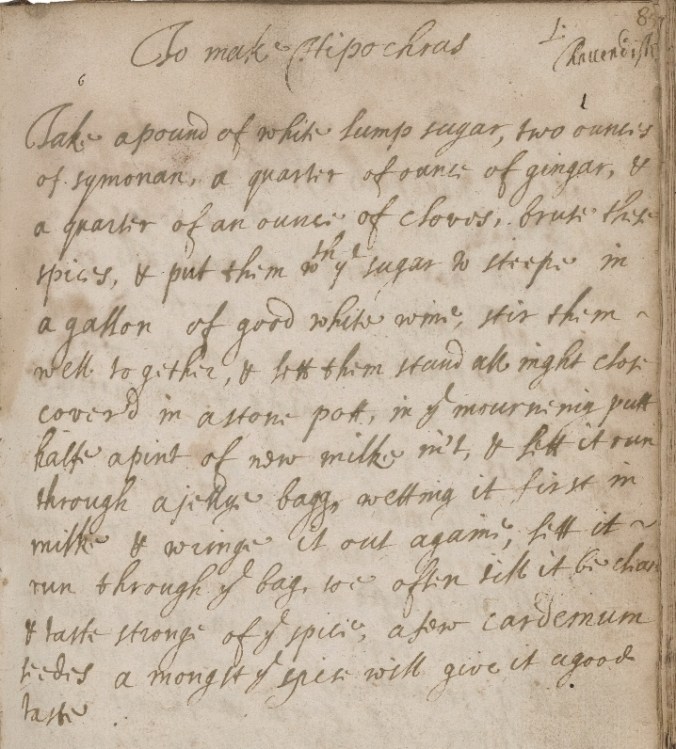 8
To make Hipochras
L:
6
1
Take a pound of white lump sugar, two ounces
of symonan, a quarter of ounce of gingar, &
a quarter of an ounce of cloves, bruse these
spices, & put them wth ye sugar to steepe in
a gallon of good white wine, stir them ~
well together, & lett them stand all night close
cover'd in a stone pott, in ye mournenig putt
halfe a pint of new milke in't, & lett it run
through a jellye bagg, wetting it first in
milke & wringe it out againe, lett it ~
run through ye bag, soe often till it be clear
& taste stronge of ye spice, a few cardemum
seedes a mongst ye spice will give it a good
taste .